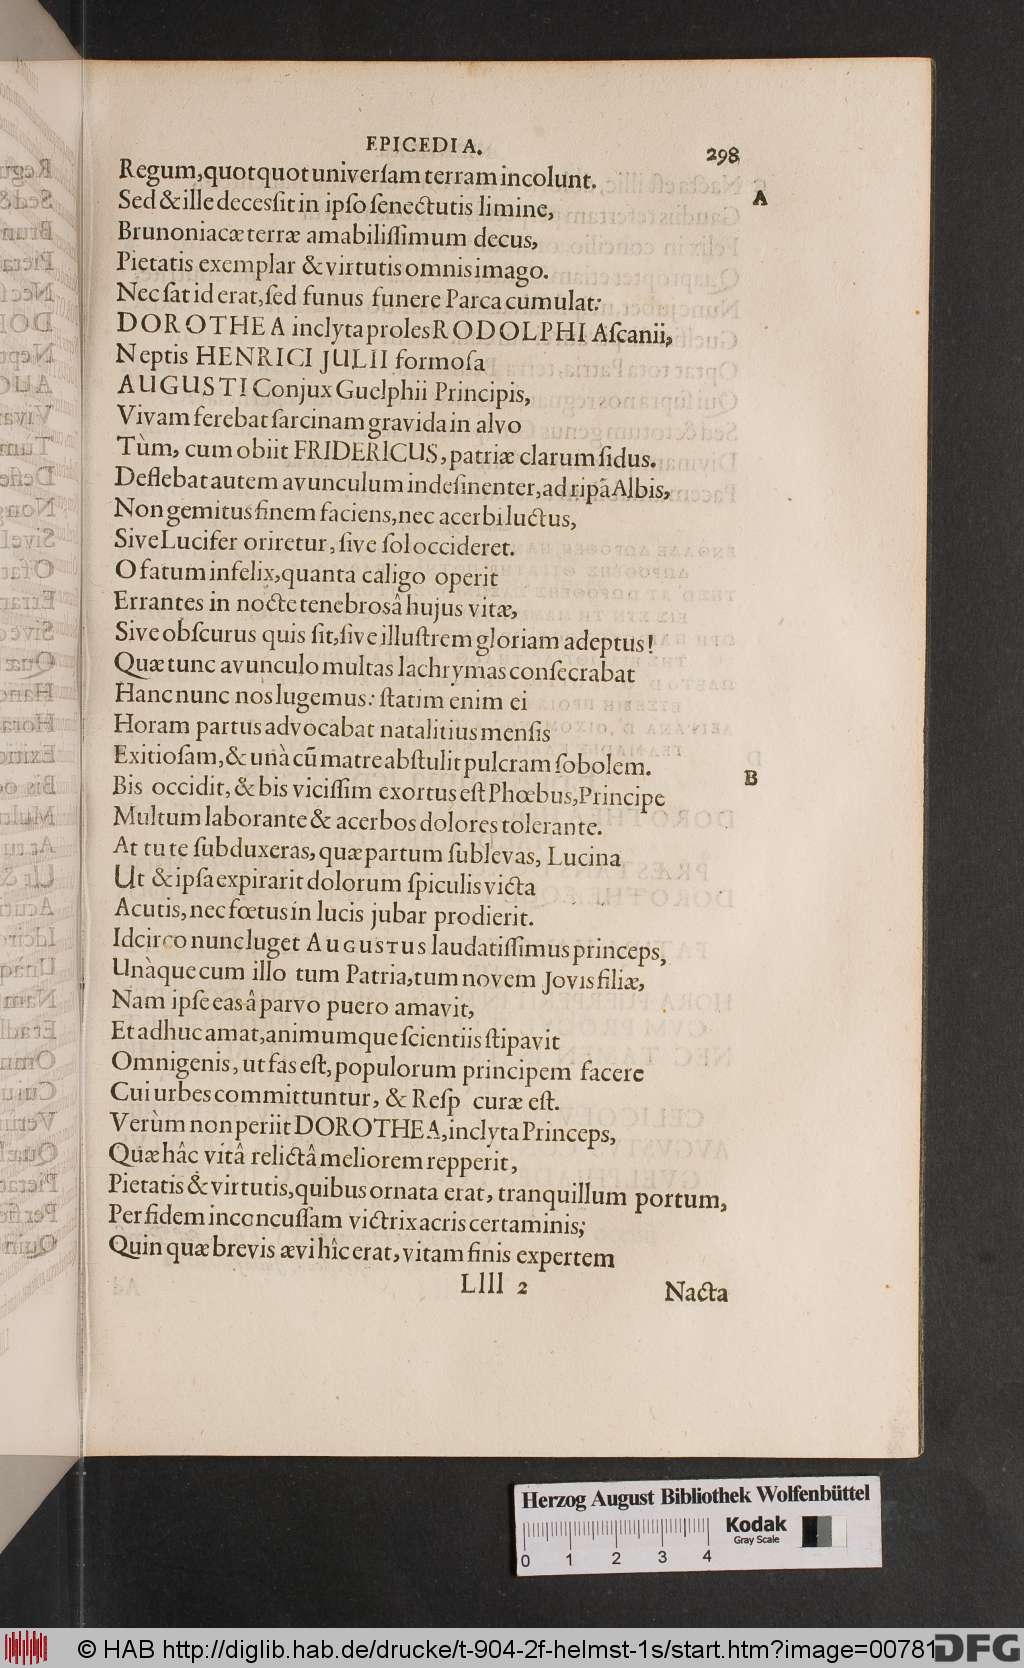 EPICEDIA. 298
Regum, quotquot univerſam terram incolunt.
A
Sed & ille decesſit in ipſo ſenectutis limine,
Brunoniacæ terræ amabiliſſimum decus,
Pietatis exemplar & virtutis omnis imago.
Nec ſat id erat, ſed funus funere Parca cumulat:
DOROTHEA inclyta proles RODOLPHI Aſcanii,
Neptis HENRICI JULII formoſa
AUGUSTI Conjux Guelphii Principis,
Vivam ferebat ſarcinam gravida in alvo
Tùm, cum obiit FRIDERICUS, patriæ clarum ſidus.
Deflebat autem avunculum indeſinenter, ad ripã Albis,
Non gemitus finem faciens, nec acerbi luctus,
Sive Lucifer oriretur, ſive ſol occideret.
O fatum infelix, quanta caligo operit
Errantes in nocte tenebrosâ hujus vitæ,
Sive obſcurus quis ſit, ſive illuſtrem gloriam adeptus!
Quæ tunc avunculo multas lachrymas conſecrabat
Hanc nunc nos lugemus: ſtatim enim ei
Horam partus advocabat natalitius menſis
Exitioſam, & unà cũ matre abſtulit pulcram ſobolem.
B
Bis occidit, & bis viciſſim exortus eſt Phœbus, Principe
Multum laborante & acerbos dolores tolerante.
At tu te ſubduxeras, quæ partum ſublevas, Lucina
Ut & ipſa expirarit dolorum ſpiculis victa
Acutis, nec fœtus in lucis jubar prodierit.
Idcirco nunc luget AUGUSTUS laudatiſſimus princeps,
Unàque cum illo tum Patria, tum novem Jovis filiæ,
Nam ipſe eas â parvo puero amavit,
Et adhuc amat, animumque ſcientiis ſtipavit
Omnigenis, ut fas eſt, populorum principem facere
Cui urbes committuntur, & Reſp curæ eſt.
Verùm non periit DOROTHEA, inclyta Princeps,
Quæ hâc vitâ relictâ meliorem repperit,
Pietatis & virtutis, quibus ornata erat, tranquillum portum,
Per fidem inconcuſſam victrix acris certaminis;
Quin quæ brevis ævi hîc erat, vitam finis expertem
Llll 2 Nacta
Herzog August Bibliothek Wolfenbüttel
Kodak
Gray Scale
0 1 2 3 4
© HAB http://diglib.hab.de/drucke/t-904-2f-helmst-1s/start.htm?image=00781
DFG